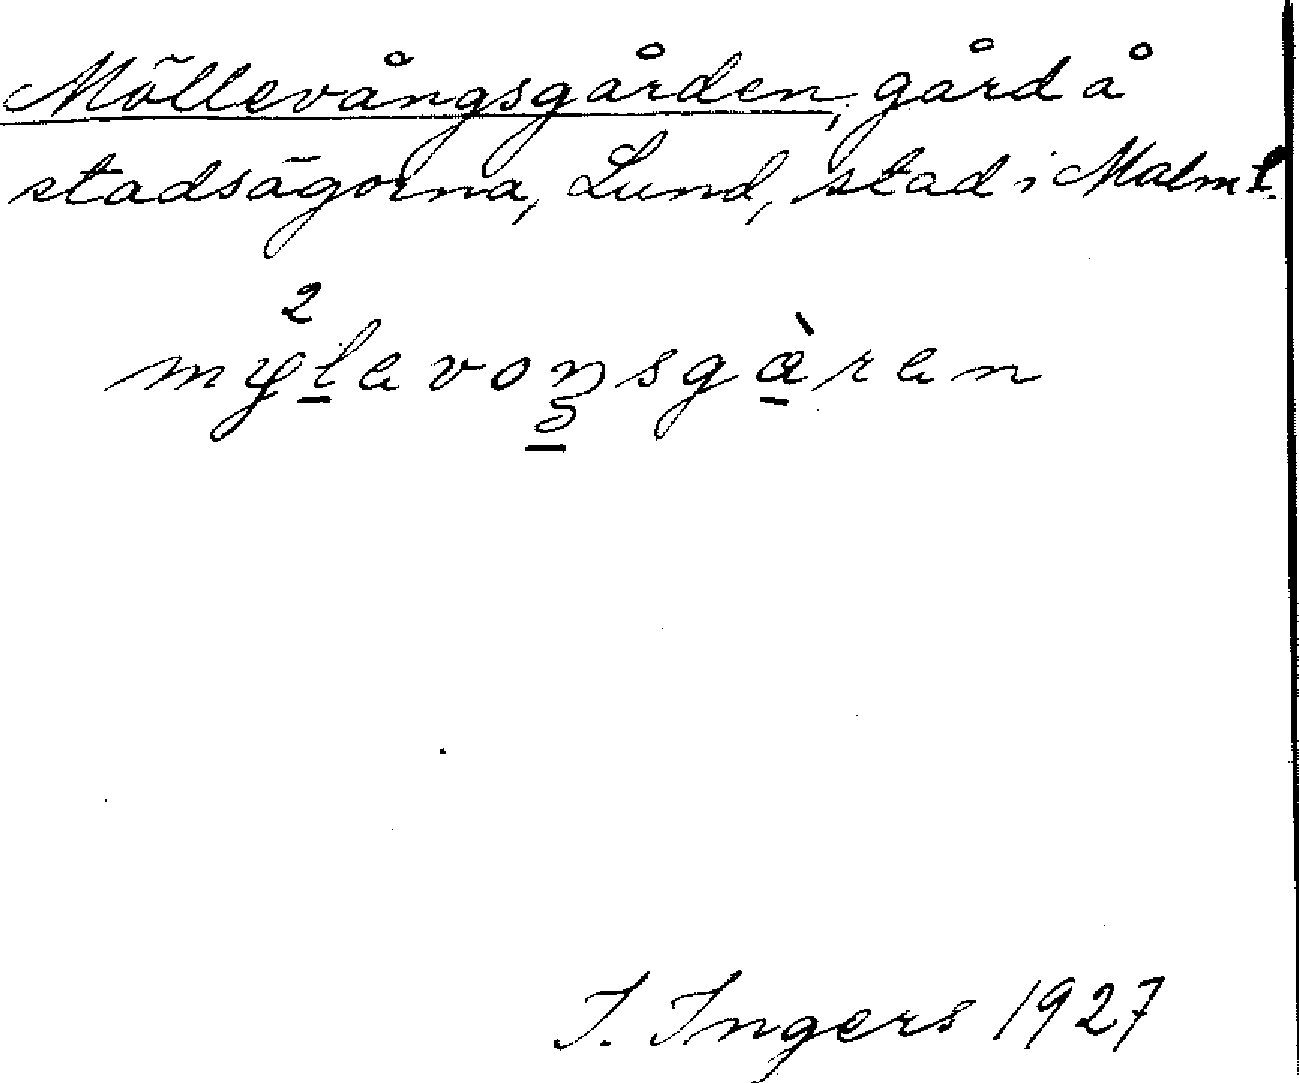 Möllevångsgården, gård å
stadsägorna, Lund, stad i Malm l.
I. Ingers 1927